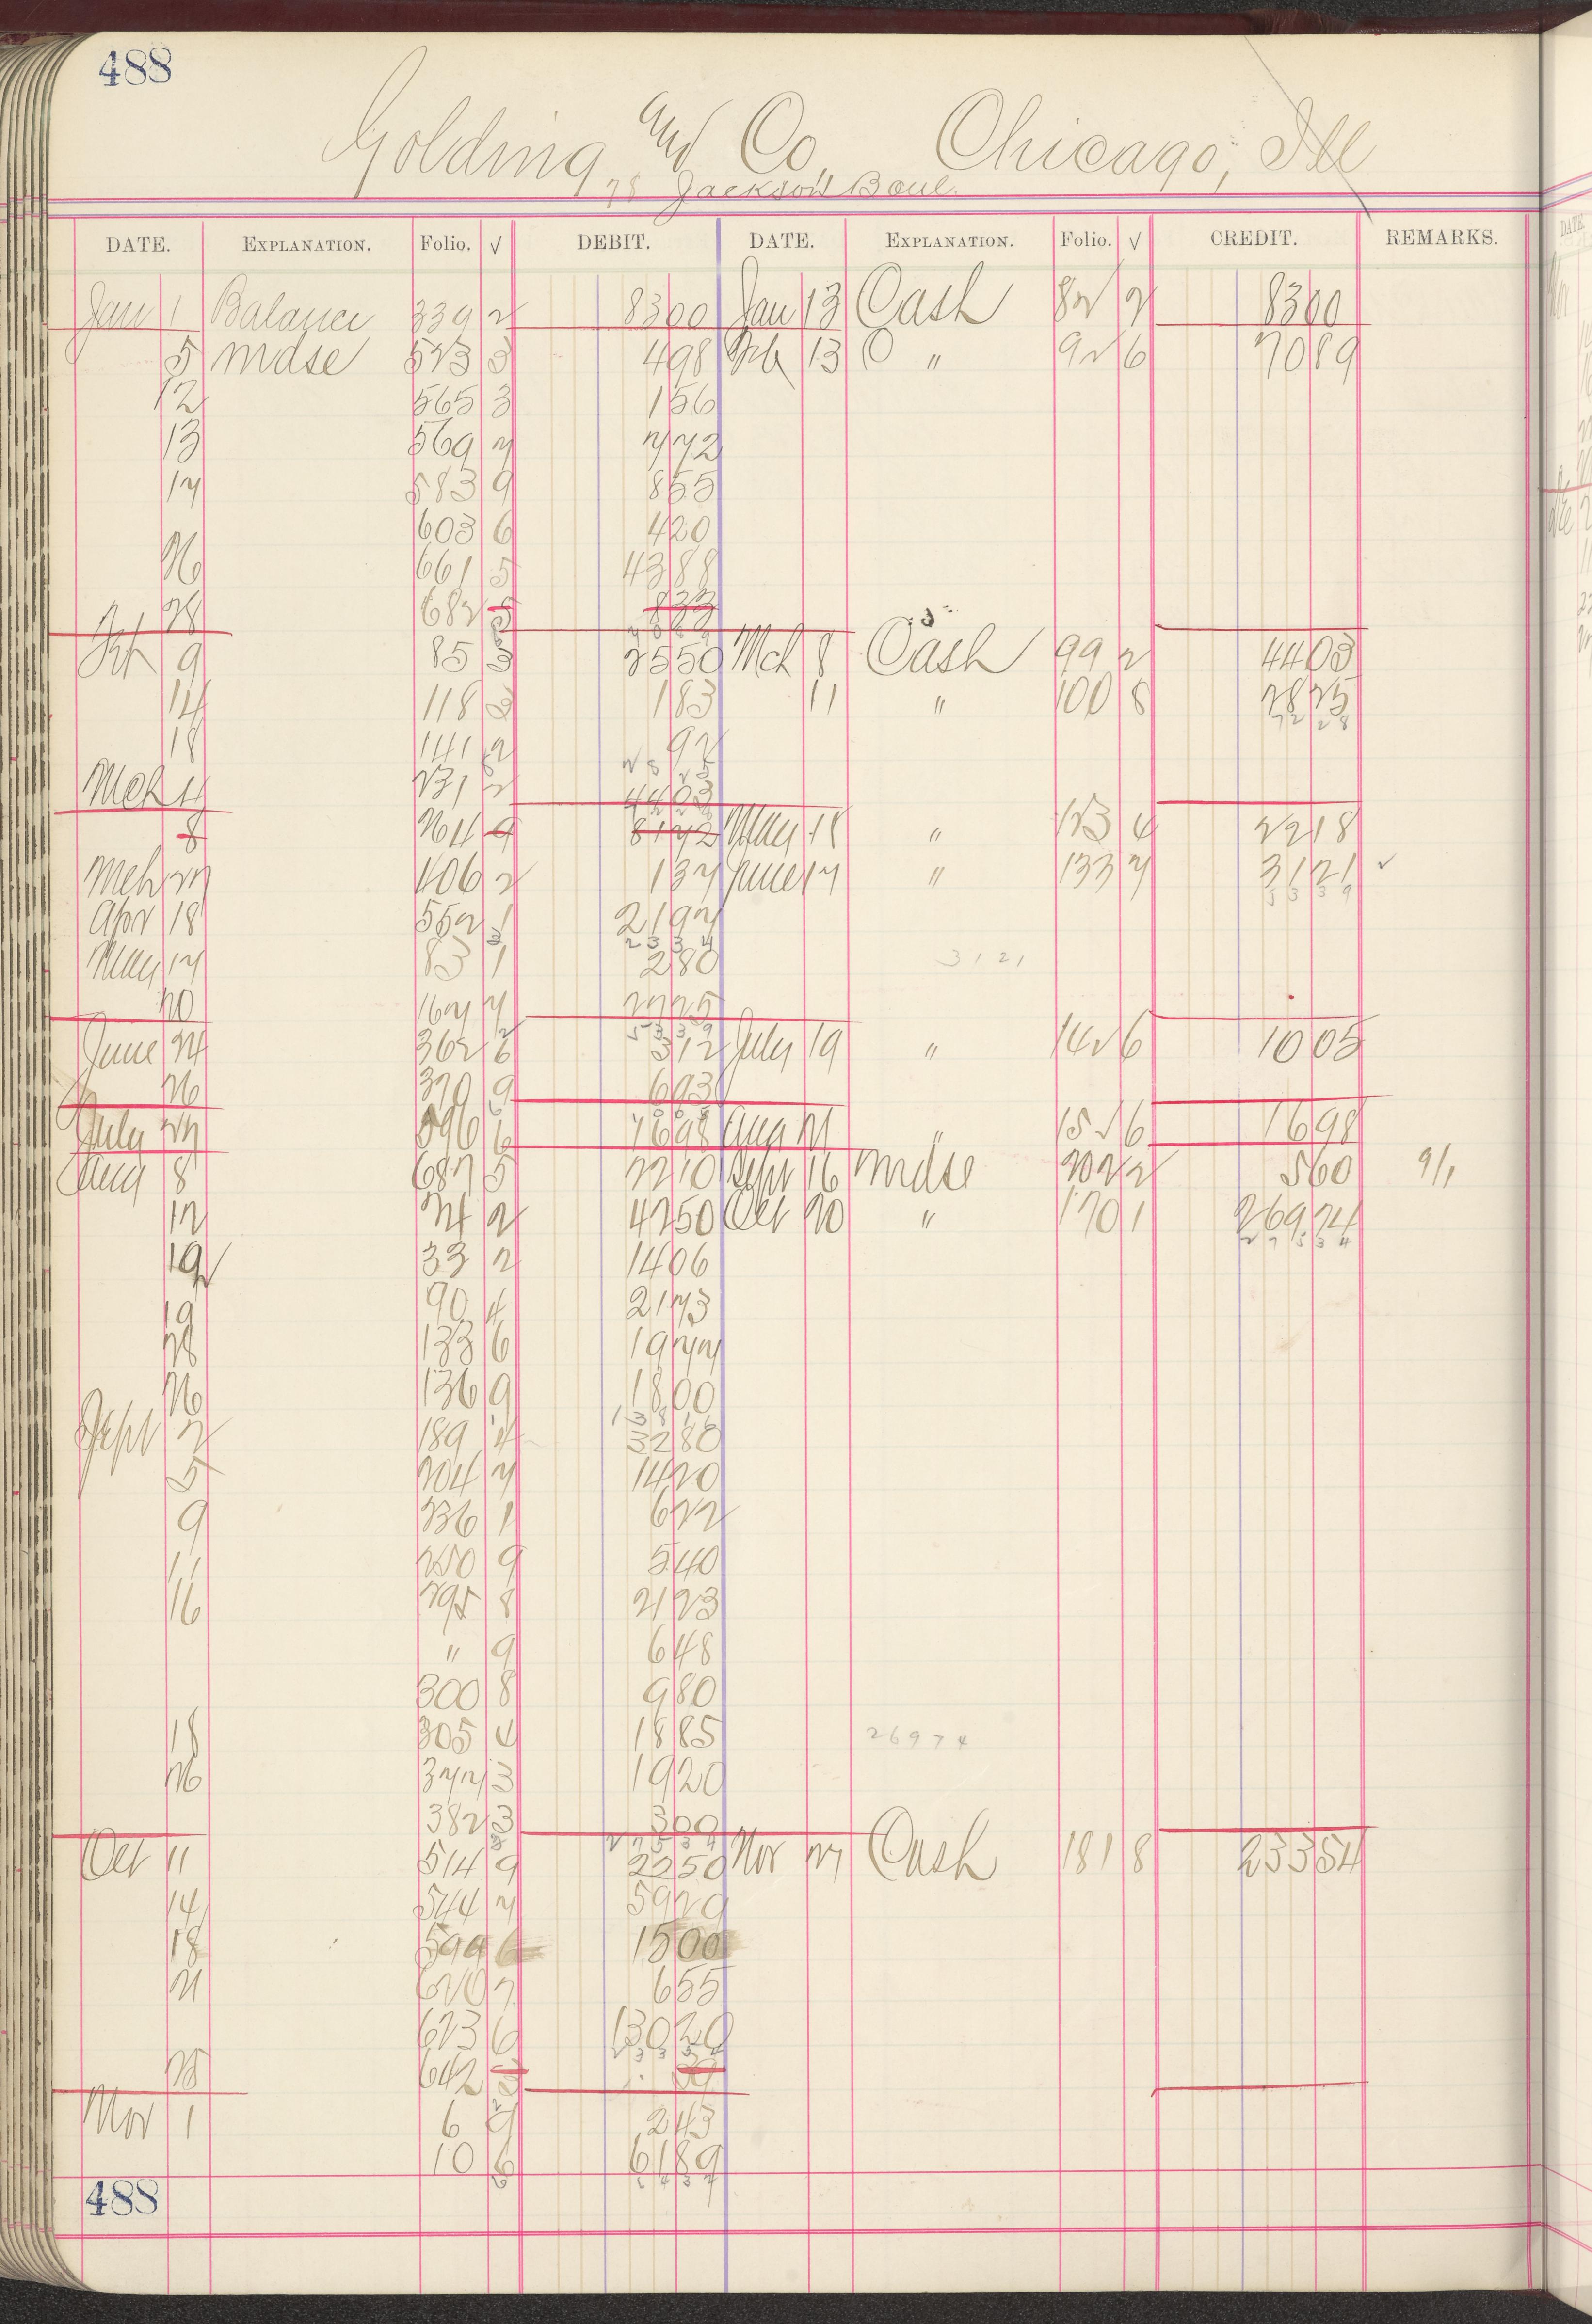 488
Golding and Co. Chicago, Ill
78 Jackson Boul.
DATE. EXPLANATION. Folio. √ DEBIT. DATE. EXPLANATION. Folio. √ CREDIT. REMARKS.
Jan 1 Balance 339 2 8300 Jan 13 Cash 82 2 8300
5 mdse 523 3 498 Feb 13 " 92 6 7089
12 565 3 156
13 569 7 772
17 583 9 855
603 6 420
26 661 5 4388
28 682 5 833
Feb 9 85 3 2550 Mch 8 Cash 99 2 4403
14 118 3 183 11 " 100 8 2825
18 141 2 92
Mch 4 231 2 4403
8 264 9 8172 May 18 " 123 4 2218
Mch 27 406 2 137 June 17 " 133 7 3121 ✓
Apr 18 552 1 2197
2334
May 17 83 1 280 3121
20 167 7 2725
5339
June 24 362 6 312 July 19 " 142 6 1005
26 370 9 693
July 27 596 6 1698 Aug 21 " 152 6 1698
Aug 8 687 5 2210 Sept 16 mdse 202 2 560 9/1
12 24 2 4250 Oct 20 " 170 1 26974
19 33 2 1406
19 90 4 2173
28 133 6 1977
26 136 9 1800
Sept 2 189 4 3280
5 204 7 1420
9 236 1 622
11 250 9 540
16 295 8 2123
" 9 648
300 8 980
18 305 4 1885 26974
26 377 3 1920
382 3 300
Oct 11 514 9 2250 Nov 27 Cash 181 8 23354
14 544 7 5929
18 599 6 1500
21 620 7 655
623 6 13020
25 642 5 39
Nov 1 6 9 243
10 6 6189
488